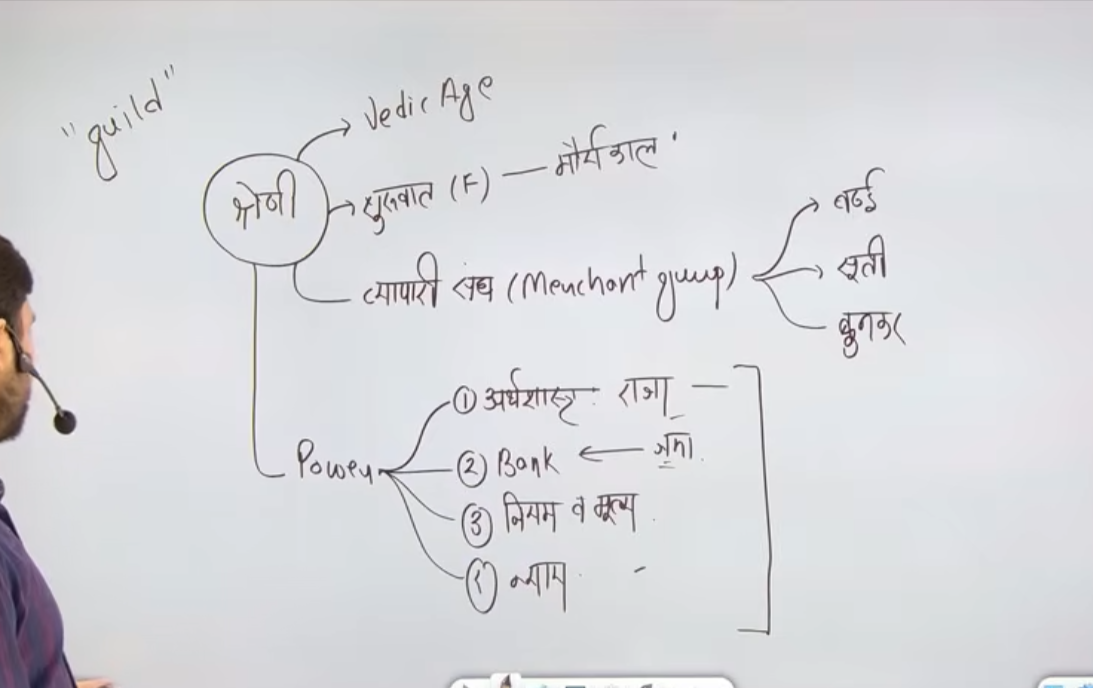 "guild"
Vedic Age
श्रेणी
शुरुवात (F) — मौर्यकाल
व्यापारी संघ (Merchant group)
बढई
सूती
बुनकर
Power
① अर्थशास्त्र : राजा —
② Bank ← जमा.
③ नियम व मूल्य.
④ न्याय. -